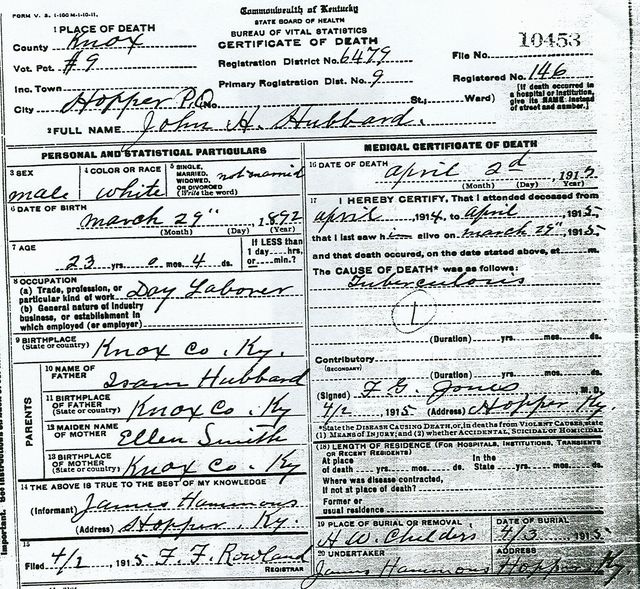 FORM V. S. 1-100 M-1-10-11.
Commonwealth of Kentucky
STATE BOARD OF HEALTH
BUREAU OF VITAL STATISTICS
CERTIFICATE OF DEATH
1 PLACE OF DEATH
County Knox
Vot. Pct. #9
Inc. Town
City Hopper P.O. No. St.; Ward)
Registration District No. 6479
Primary Registration Dist. No. 9
File No. 10453
Registered No. 146
(If death occurred in a hospital or institution, give its NAME instead of street and number.)
2 FULL NAME John H. Hubbard.
PERSONAL AND STATISTICAL PARTICULARS
3 SEX male
4 COLOR OR RACE White
5 SINGLE, MARRIED, WIDOWED, OR DIVORCED (Write the word) not married
6 DATE OF BIRTH March 29" 1892
(Month) (Day) (Year)
7 AGE 23 yrs. 0 mos. 4 ds.
If LESS than 1 day---hrs. or---min.?
8 OCCUPATION
(a) Trade, profession, or particular kind of work Day Laborer
(b) General nature of industry business, or establishment in which employed (or employer)
9 BIRTHPLACE (State or country) Knox Co. Ky.
PARENTS
10 NAME OF FATHER Isam Hubbard
11 BIRTHPLACE OF FATHER (State or country) Knox Co. Ky
12 MAIDEN NAME OF MOTHER Ellen Smith
13 BIRTHPLACE OF MOTHER (State or country) Knox Co. Ky
14 THE ABOVE IS TRUE TO THE BEST OF MY KNOWLEDGE
(Informant) James Hammons
(Address) Hopper, Ky.
15
Filed 4/2, 1915 F. F. Rowland
REGISTRAR
MEDICAL CERTIFICATE OF DEATH
16 DATE OF DEATH April 2d, 1915
(Month) (Day) (Year)
17 I HEREBY CERTIFY, That I attended deceased from
April 1914, to April, 1915
that I last saw him alive on March 29", 1915
and that death occurred, on the date stated above, at m.
The CAUSE OF DEATH* was as follows:
Tuberculosis
1
(Duration) yrs. mos. ds.
Contributory
(SECONDARY)
(Duration) yrs. mos. ds.
(Signed) F. G. Jones M. D.
4/2, 1915 (Address) Hopper Ky.
*State the DISEASE CAUSING DEATH, or, in deaths from VIOLENT CAUSES, state (1) MEANS OF INJURY; and (2) whether ACCIDENTAL, SUICIDAL or HOMICIDAL.
(18) LENGTH OF RESIDENCE (FOR HOSPITALS, INSTITUTIONS, TRANSIENTS OR RECENT RESIDENTS)
At place of death yrs. mos. ds. In the State yrs. mos. ds.
Where was disease contracted, if not at place of death?
Former or usual residence
19 PLACE OF BURIAL OR REMOVAL H W. Childers
DATE OF BURIAL 4/3 1915
20 UNDERTAKER James Hammons
ADDRESS Hopper Ky